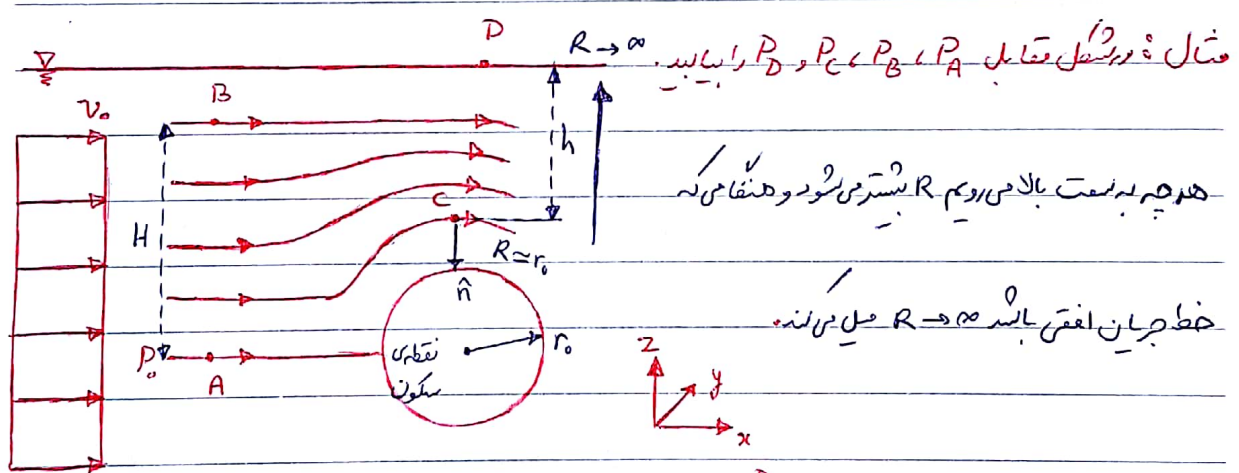 مثال : در شکل مقابل P_A ، P_B ، P_C و P_D را بیابید.
هر چه به سمت بالا می رویم R بیشتر می شود و هنگامی که
خط جریان افقی باشد R → ∞ میل می کند.
D
R → ∞
B
V₀
h
C
H
R ≃ r₀
n̂
P₀
A
نقطه‌ی
سکون
r₀
z
y
x